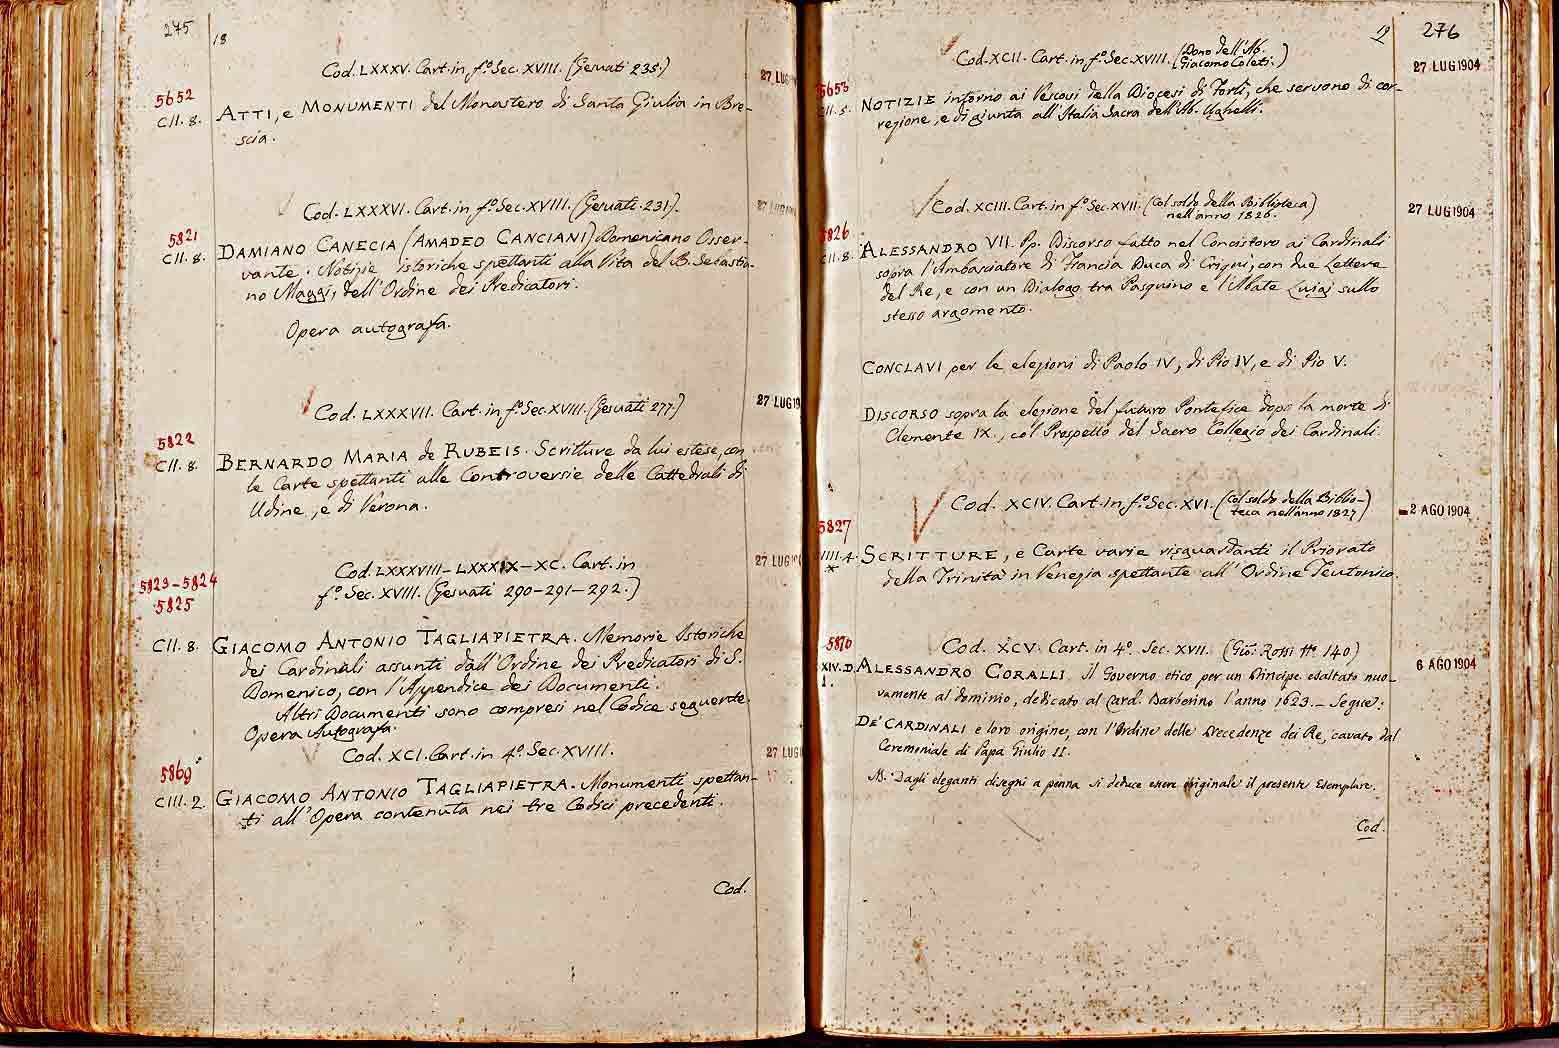 275
18
Cod. LXXXV. Cart. in fº. Sec. XVIII. (Gesuati 235.)
27 LUG
5652
CII. 8.
ATTI, e MONUMENTI del Monastero di Santa Giulia in Bre-
scia.
Cod. LXXXVI. Cart. in fº. Sec. XVIII. (Gesuati. 231.).
27 LUG 1904
5821
CII. 8.
DAMIANO CANECIA (AMADEO CANCIANI) Domenicano Osser-
vante. Notizie istoriche spettanti alla Vita del B. Sebastia-
no Maggi, dell'Ordine dei Predicatori.
Opera autografa.
Cod. LXXXVII. Cart. in fº. Sec. XVIII. (Gesuati 277.)
27 LUG 19
5822
CII. 8.
BERNARDO MARIA de RUBEIS. Scritture da lui estese, con
le Carte spettanti alle Controversie delle Cattedrali di
Udine, e di Verona.
Cod. LXXXVIII–LXXXIX–XC. Cart. in
fº. Sec. XVIII. (Gesuati 290–291–292.)
27 LUG 1
5823–5824
5825
CII. 8.
GIACOMO ANTONIO TAGLIAPIETRA. Memorie Istoriche
dei Cardinali assunti dall'Ordine dei Predicatori di S.
Domenico, con l'Appendice dei Documenti.
Altri Documenti sono compresi nel Codice seguente.
Opera Autografa.
Cod. XCI. Cart. in 4º. Sec. XVIII.
27 LUG
5869
CIII. 2.
GIACOMO ANTONIO TAGLIAPIETRA. Monumenti spettan-
ti all'Opera contenuta nei tre Codici precedenti.
Cod.
19
276
Cod. XCII. Cart. in fº. Sec. XVIII. (Dono dell'Ab.
Giacomo Coleti.)
27 LUG 1904
5653
CII. 5.
NOTIZIE intorno ai Vescovi della Diocesi di Forlì, che servono di cor-
rezione, e di giunta all'Italia Sacra dell'Ab. Ughelli.
Cod. XCIII. Cart. in fº. Sec. XVII. (Col soldo della Biblioteca)
nell'anno 1826.
27 LUG 1904
5826
CII. 8.
ALESSANDRO VII. Pp. Discorso fatto nel Concistoro ai Cardinali
sopra l'Ambasciatore di Francia Duca di Criqui, con due Lettere
del Re, e con un Dialogo tra Pasquino e l'Abate Luigi sullo
stesso argomento.
CONCLAVI per le elezioni di Paolo IV, di Pio IV, e di Pio V.
DISCORSO sopra la elezione del futuro Pontefice dopo la morte di
Clemente IX., col Prospetto del Sacro Collegio dei Cardinali.
Cod. XCIV. Cart. in fº. Sec. XVI. (Col soldo della Biblio-
teca nell'anno 1827)
-2 AGO 1904
5827
IIII. 4.
SCRITTURE, e Carte varie risguardanti il Priorato
della Trinità in Venezia spettante all'Ordine Teutonico.
Cod. XCV. Cart. in 4º. Sec. XVII. (Gio: Rossi 140)
6 AGO 1904
5870
XIV. D
1.
ALESSANDRO CORALLI. Il Governo etico per un Principe esaltato nuo-
vamente al dominio, dedicato al Card. Barberino l'anno 1623. – Segue:
DE' CARDINALI e loro origine, con l'Ordine delle Precedenze dei Re, cavato dal
Ceremoniale di Papa Giulio II.
NB. Dagli eleganti disegni a penna si deduce essere originale il presente Esemplare.
Cod.